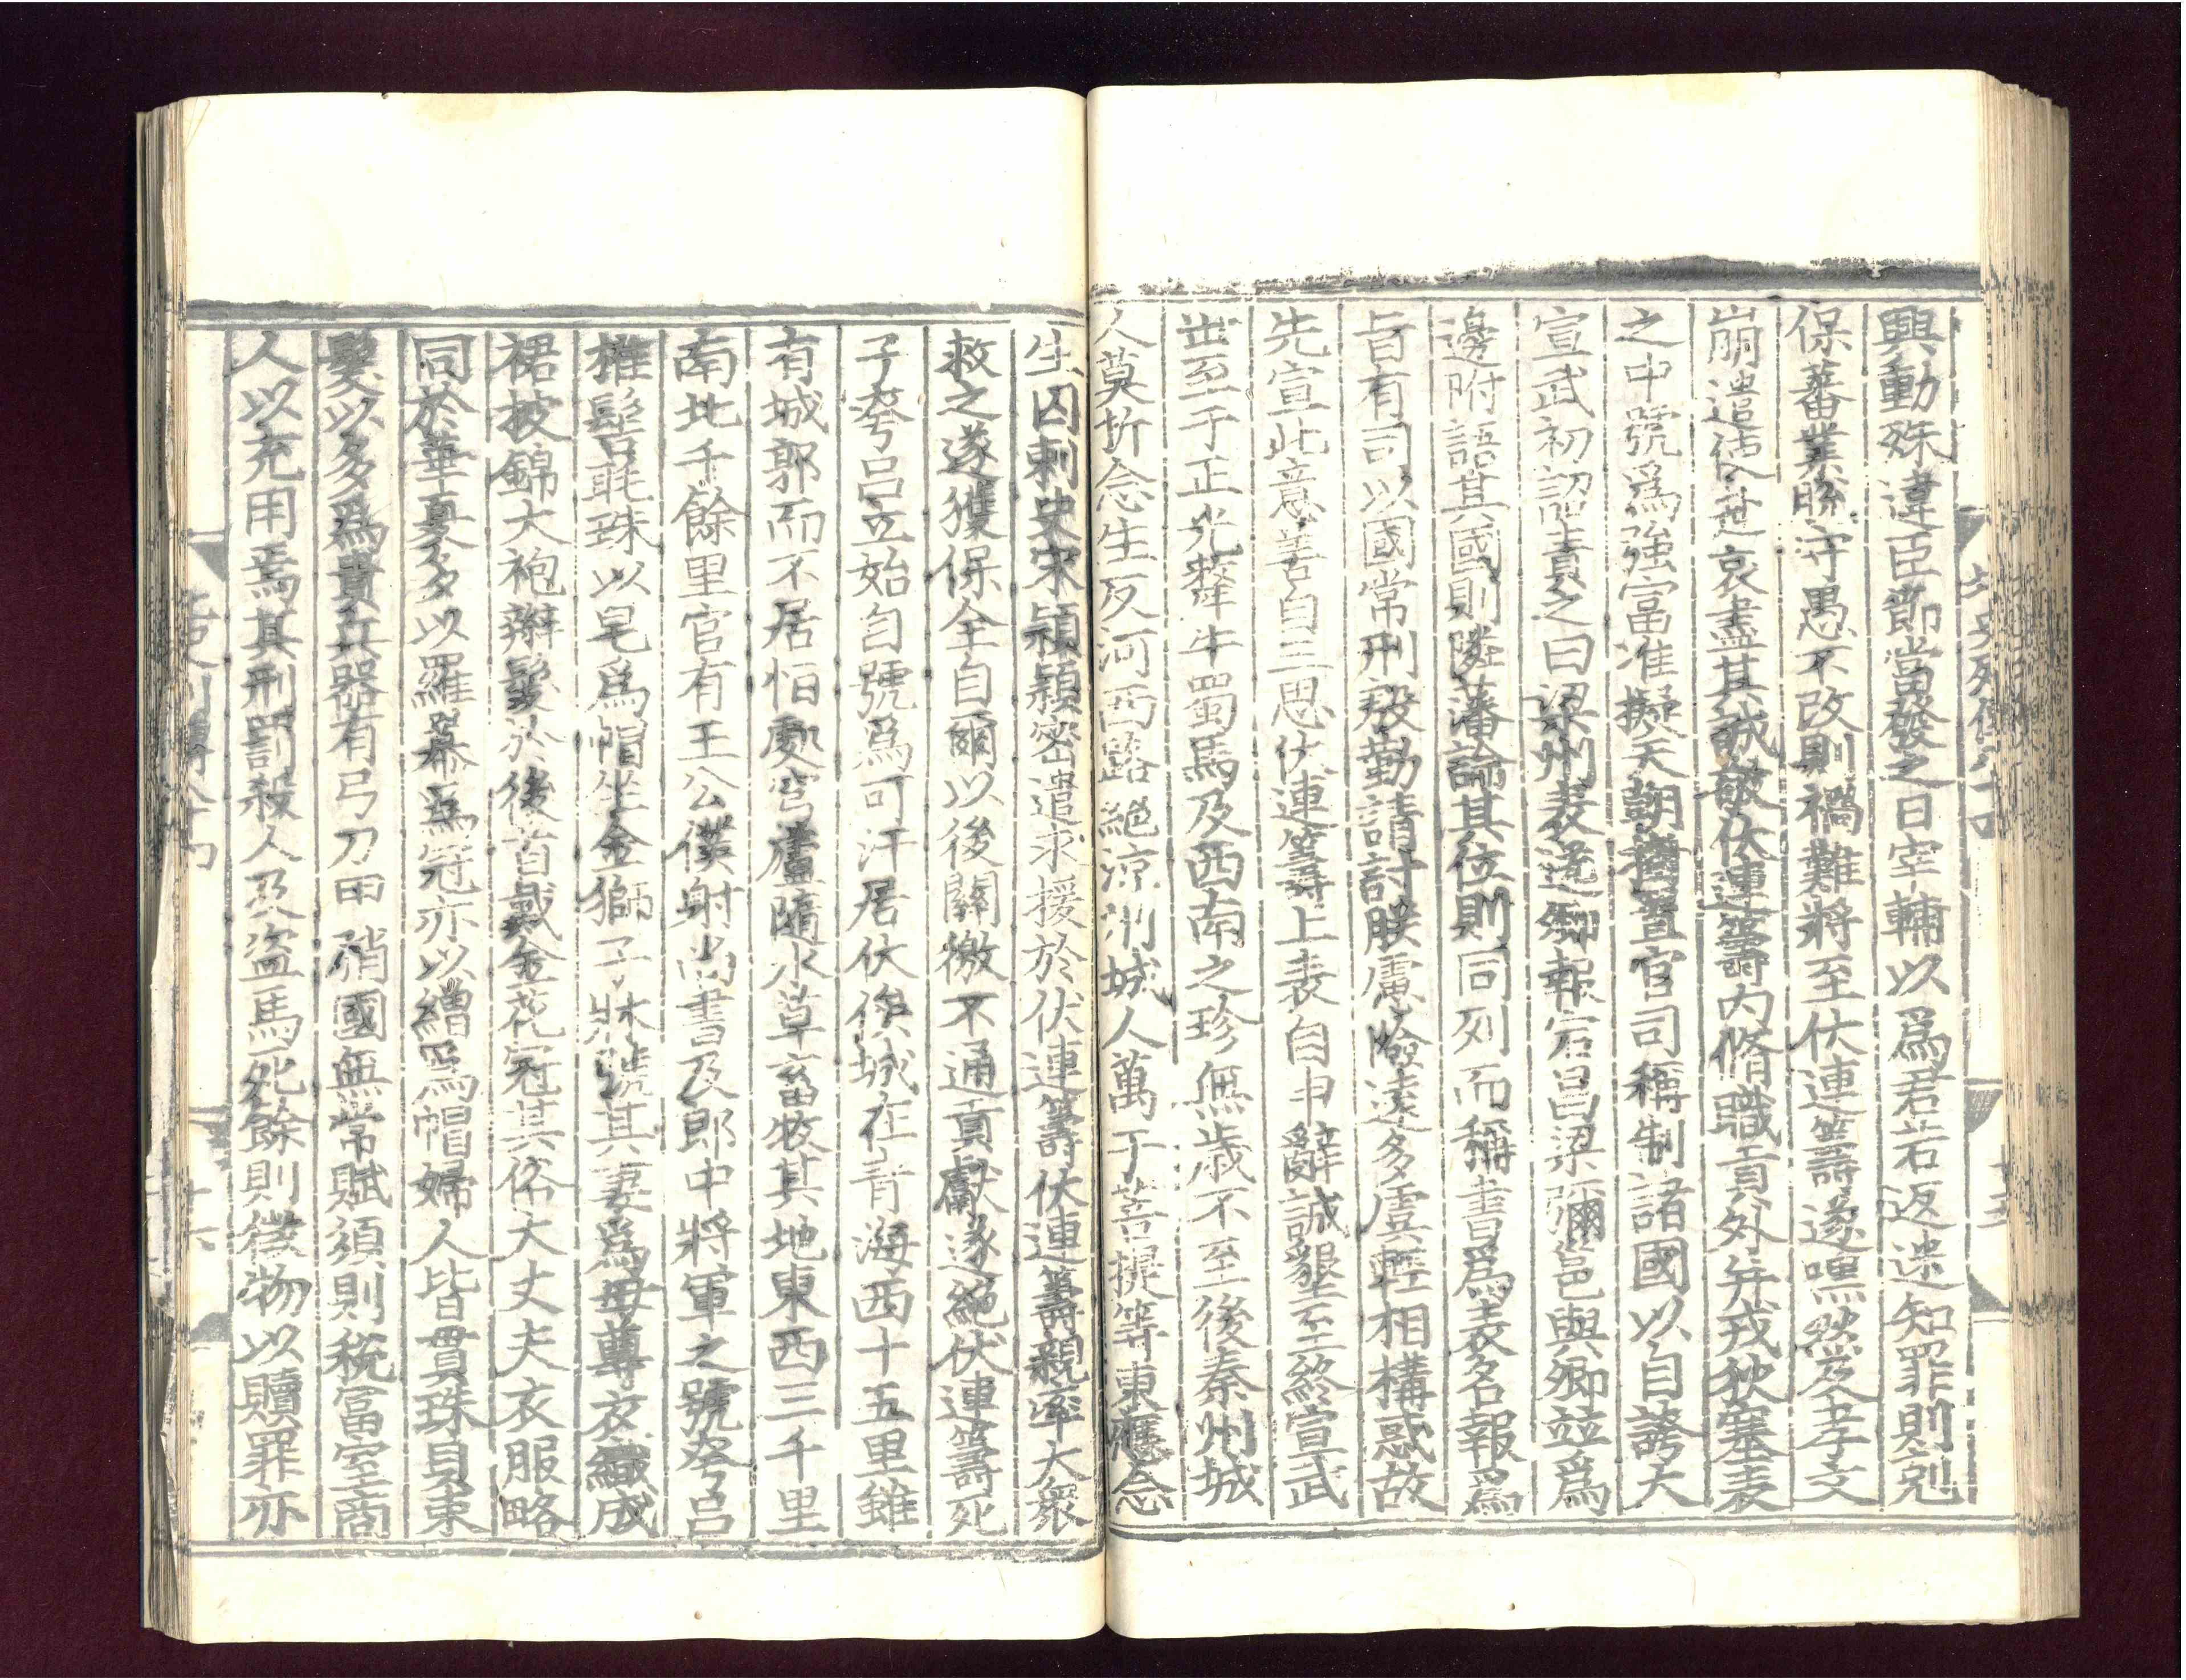 興動殊違臣節當發之日宰輔以爲君若返迷知罪則剋
保蕃業脫守愚不改則禍難將至伏連籌遂嘿然及孝文
崩遣使赴哀盡其誠敬伏連籌內脩職貢外并戎狄塞表
之中號爲強富准擬天朝樹置官司稱制諸國以自誇大
宣武初詔責之曰梁州表送卿報宕昌梁彌邕與卿並爲
邊附語其國則隣藩論其位則同列而稱書爲表名報爲
旨有司以國常刑殷勤請討朕慮險遠多虞輕相構惑故
先宣此意善自三思伏連籌上表自申辭誠懇至終宣武
世至于正光犛牛蜀馬及西南之珍無歲不至後秦州城
人莫折念生反河西路絕涼州城人萬于菩提等東應念
生囚刺史宋穎穎密遣求援於伏連籌伏連籌親率大衆
救之遂獲保全自爾以後關徼不通貢獻遂絕伏連籌死
子夸呂立始自號爲可汗居伏俟城在青海西十五里雖
有城郭而不居恒處穹廬隨水草畜牧其地東西三千里
南北千餘里官有王公僕射尚書及郎中將軍之號夸呂
椎髻毦珠以皂爲帽坐金獅子牀號其妻爲母尊衣織成
裙披錦大袍辮髮於後首戴金花冠其俗大丈夫衣服略
同於華夏多以羅冪爲冠亦以繒爲帽婦人皆貫珠貝束
髮以多爲貴兵器有弓刀甲矟國無常賦須則稅富室商
人以充用焉其刑罰殺人及盗馬死餘則徵物以贖罪亦